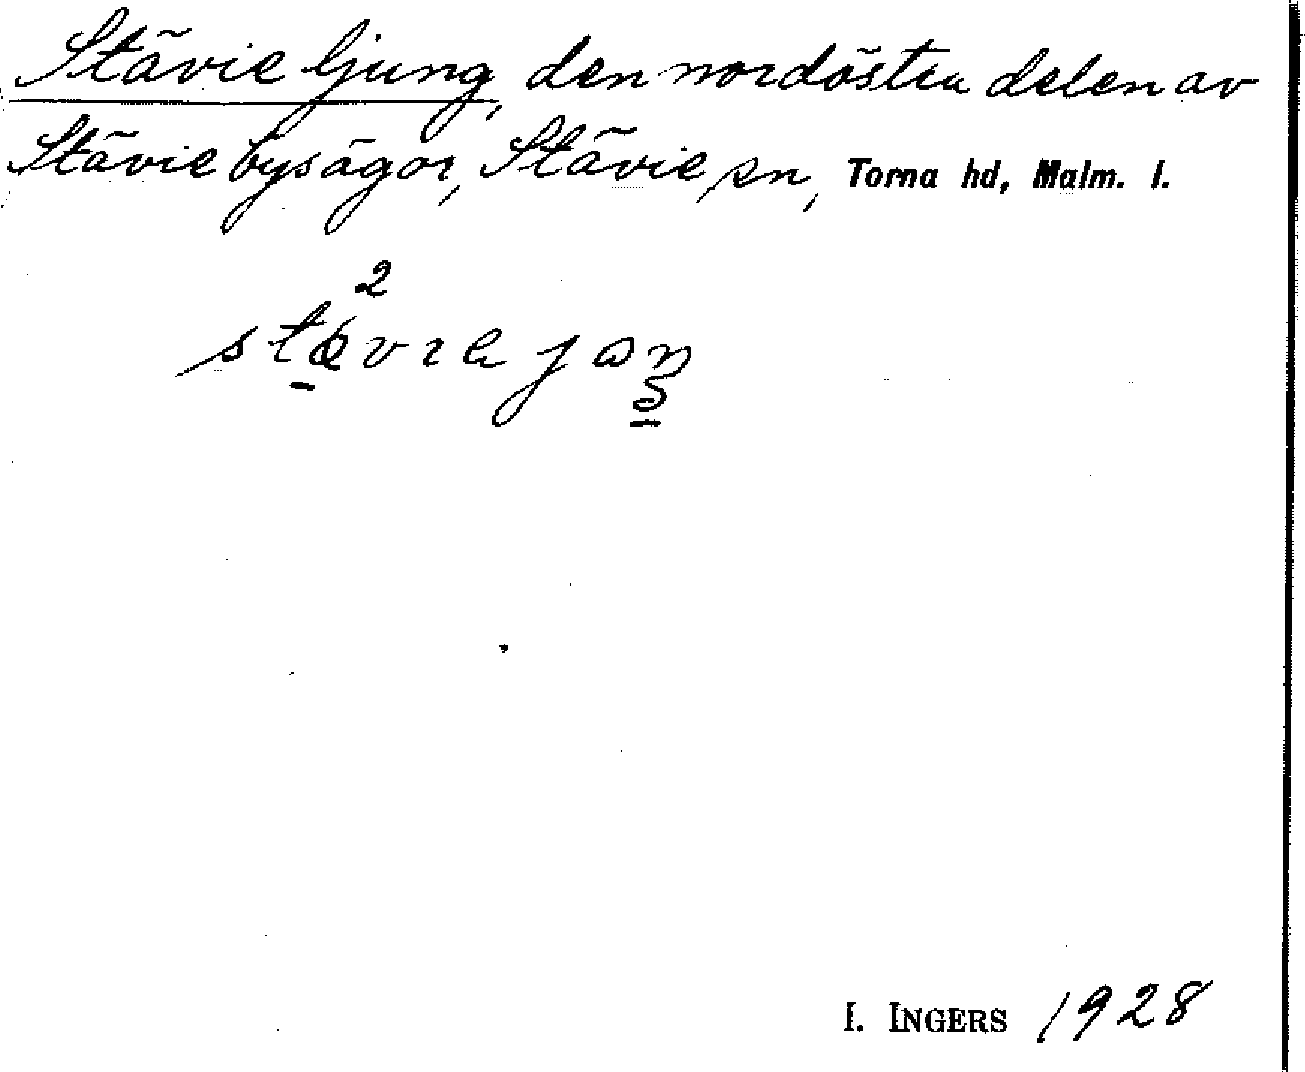 Stävie ljung, den nordöstra delen av
Stävie bysägor, Stävie sn, Torna hd, Malm. l.
2
I. INGERS 1928